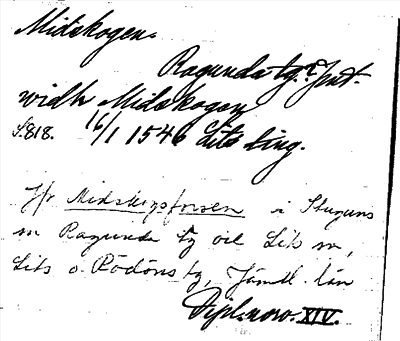 Midskogen.
Ragunda tg.? Jmt.
widh Midskogen
S. 818. 16/1 1546 Lits ting.
Jfr Midskogsforsen i Stuguns
sn Ragunda tg och Lits sn,
Lits o. Rödöns tg, Jämtl. län
Dipl. norv. XIV.